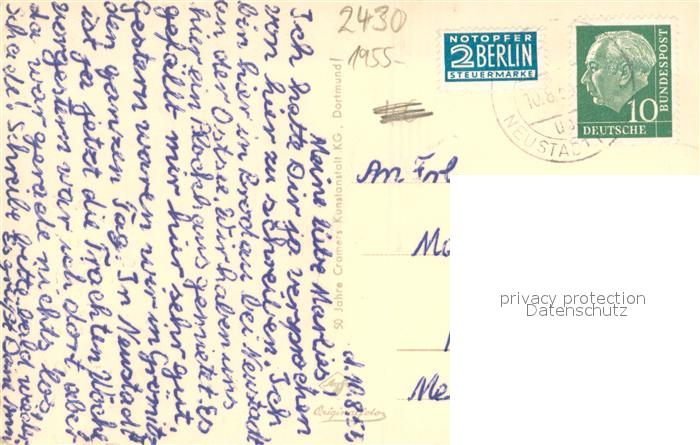 2430
1955-
NOTOPFER
2 BERLIN
STEUERMARKE
10
DEUTSCHE
BUNDESPOST
10.8.
NEUSTADT
An Frl
Mo
Me
privacy protection
Datenschutz
50 Jahre Cramers Kunstanstalt KG., Dortmund
Originalfoto
Meine liebe Marlis!
Ich hatte Dir ja versprochen
von hier zu schreiben. Ich
bin hier in Brodau bei Neustadt
an der Ostsee. Wir haben uns
hier ein Blockhaus gemietet. Es
gefällt mir hier sehr gut.
Gestern waren wir in Grömitz
den ganzen Tag. In Neustadt
ist ja jetzt die Trachten Woche
vorgestern war ich dort aber
da war gerade nichts los,
schade! Schreibe bitte bald
Es grüßt Deine